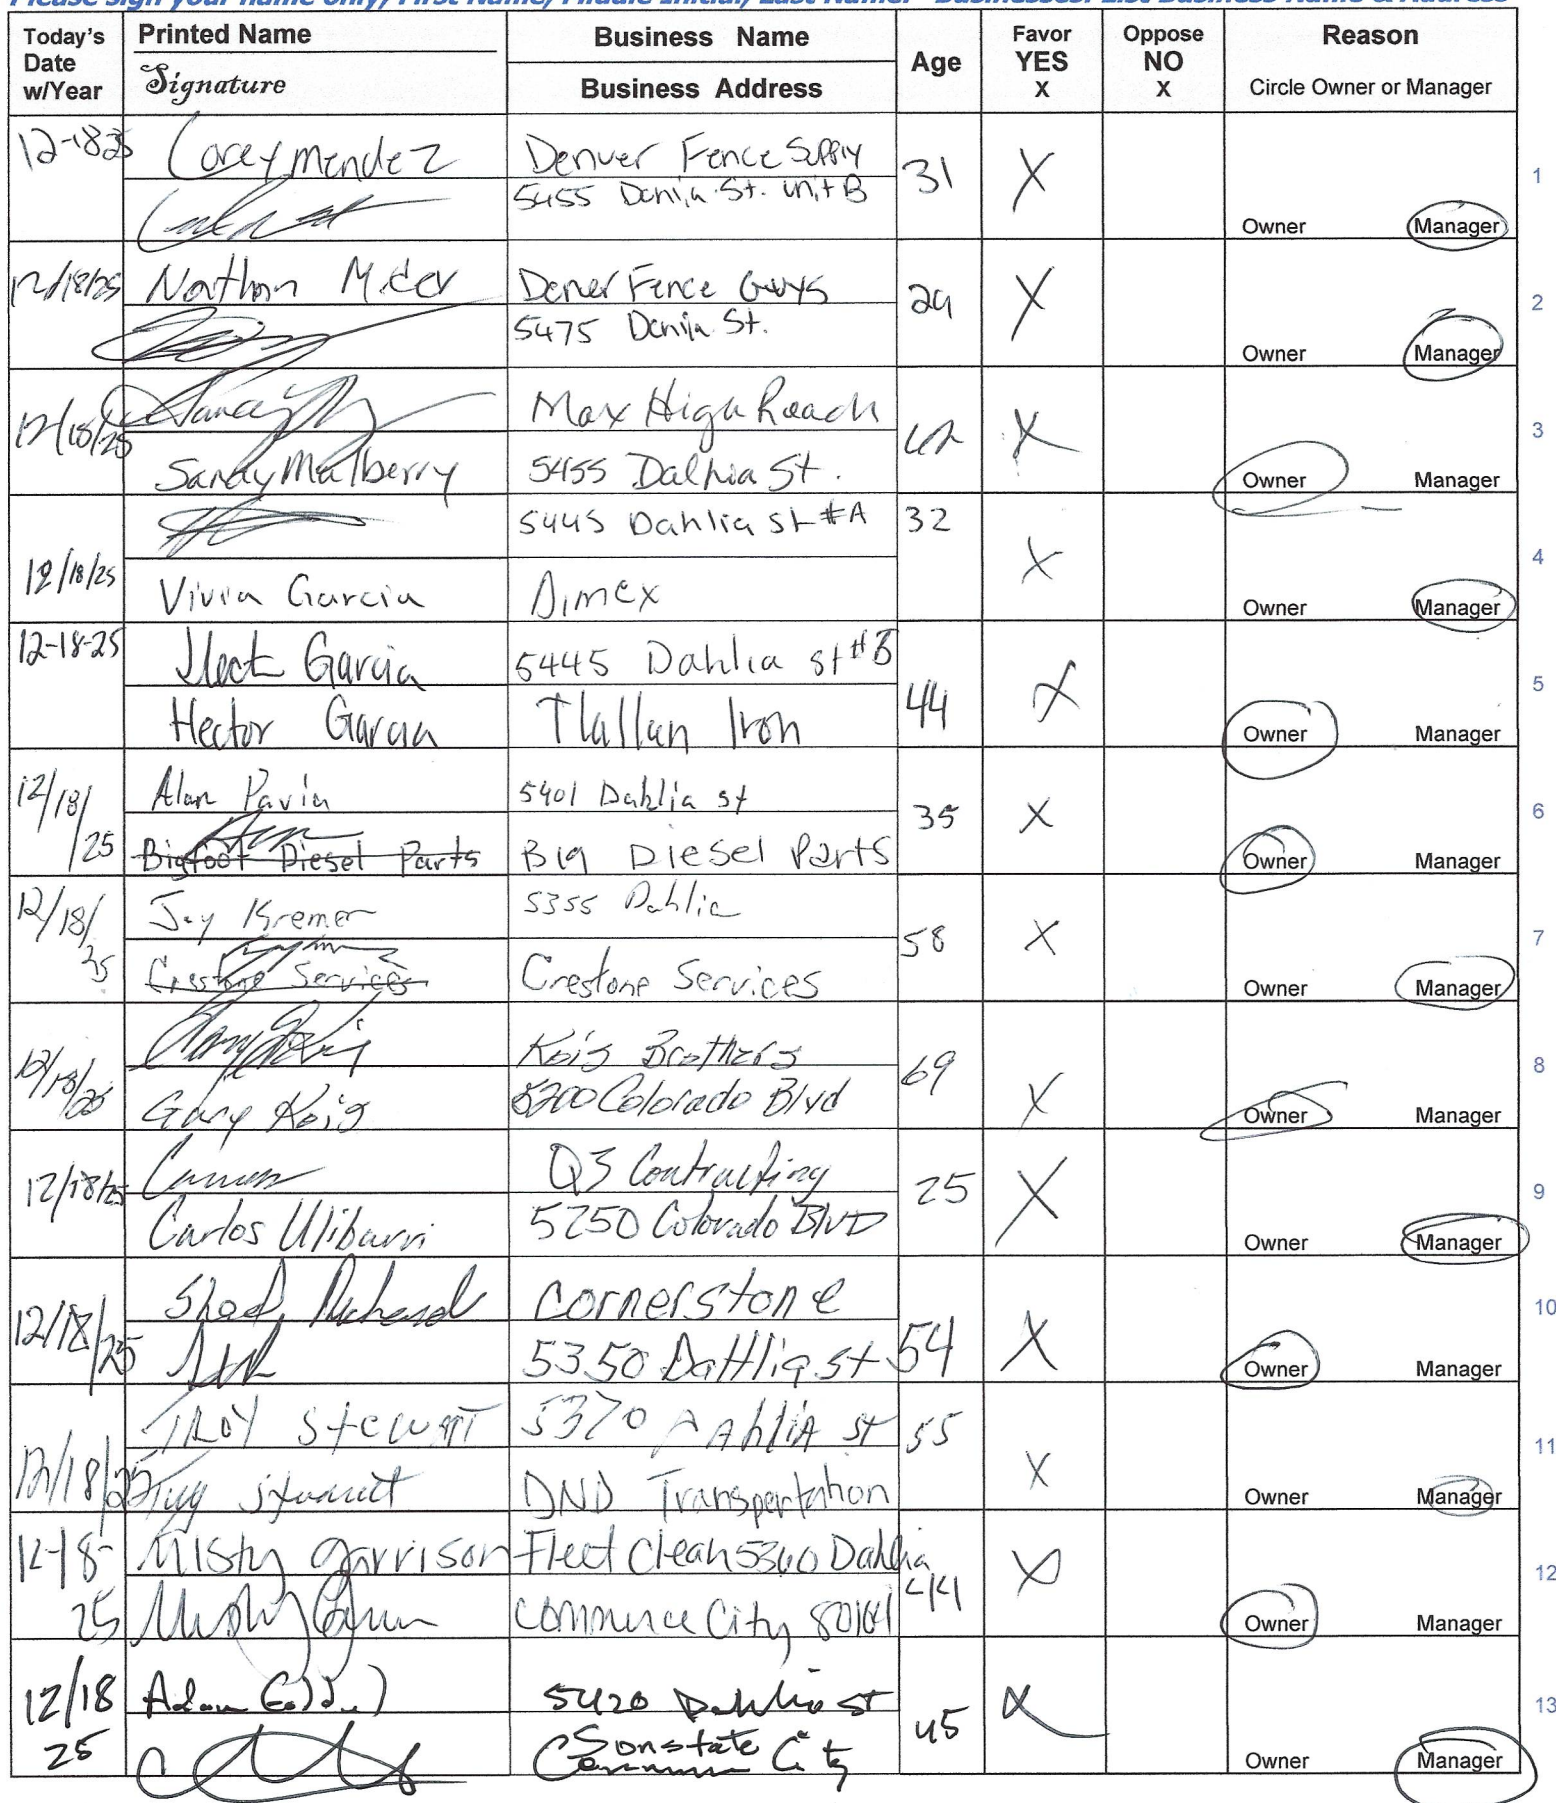 Please sign your name only, First Name, Middle Initial, Last Name. Businesses: List Business Name & Address
Today's Date w/Year
Printed Name
Signature
Business Name
Business Address
Age
Favor YES X
Oppose NO X
Reason
Circle Owner or Manager
12-18-25
Corey Mendez
Denver Fence Supply
5455 Dahlia St. Unit B
31
X
Owner Manager
1
12/18/25
Nathan
Denver Fence Guys
5475 Dahlia St.
29
X
Owner Manager
2
12/18/25
Sandy Mulberry
Max High Reach
5455 Dalhia St.
62
X
Owner Manager
3
12/18/25
Vivia Garcia
5445 Dahlia St #A
Dimex
32
X
Owner Manager
4
12-18-25
Hect Garcia
Hector Garcia
5445 Dahlia St #B
Tlallan Iron
44
X
Owner Manager
5
12/18/25
Alan Pavia
Bigfoot Diesel Parts
5401 Dahlia St
Big Diesel Parts
35
X
Owner Manager
6
12/18/25
Jay Kremer
Crestone Services
5355 Dahlia
Crestone Services
58
X
Owner Manager
7
12/18/25
Gary Kois
Kois Brothers
5200 Colorado Blvd
69
X
Owner Manager
8
12/18/25
Carlos Ulibarri
Q3 Contracting
5250 Colorado BLVD
25
X
Owner Manager
9
12/18/25
Shad Richards
Cornerstone
5350 Dahlia St
54
X
Owner Manager
10
12/18/25
Troy Stewart
Troy Stewart
5370 Dahlia St
DND Transportation
55
X
Owner Manager
11
12-18-25
Misty Garrison
Fleet Clean 5360 Dahlia
Commerce City
44
X
Owner Manager
12
12/18 25
Adam
5420 Dahlia St
Sonstate
Commerce City
45
X
Owner Manager
13